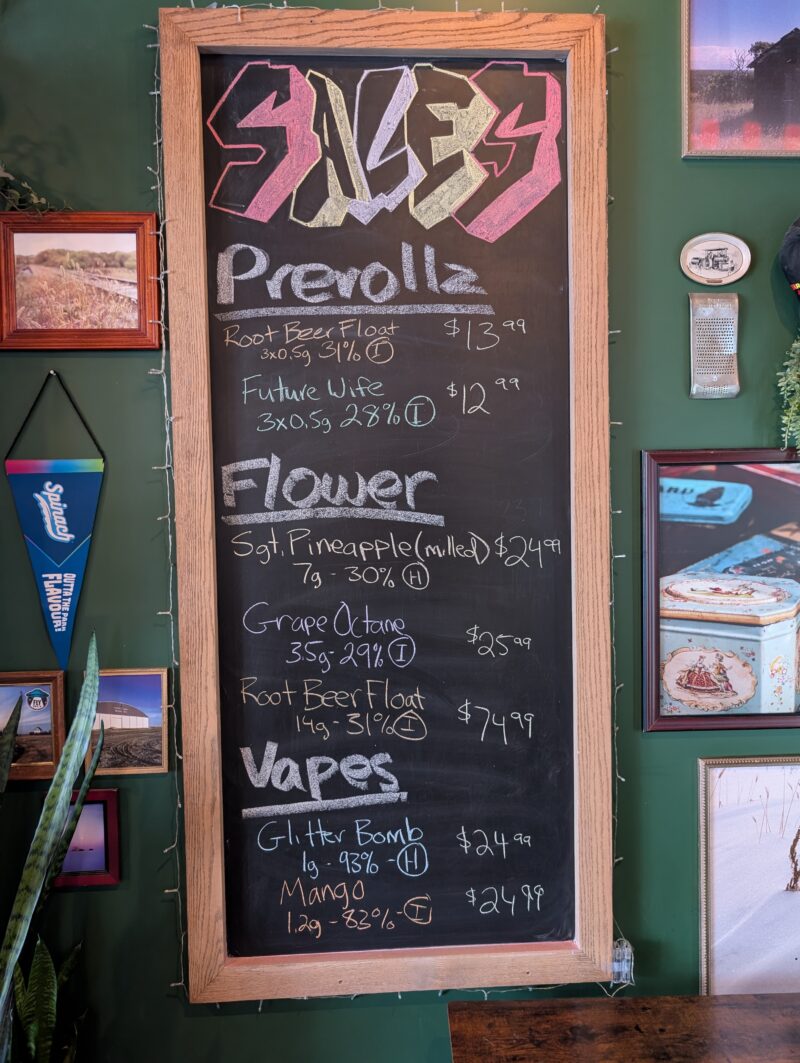 SALES
Prerollz
Root Beer Float $13.99
3x0.5g 31% I
Future Wife $12.99
3x0.5g 28% I
Flower
Sgt. Pineapple (milled) $24.99
7g - 30% H
Grape Octane $25.99
3.5g - 29% I
Root Beer Float $74.99
14g - 31% I
Vapes
Glitter Bomb $24.99
1g - 93% - H
Mango $24.99
1.2g - 83% - I
Spinach
OUTTA THE
PARK
FLAVOUR!